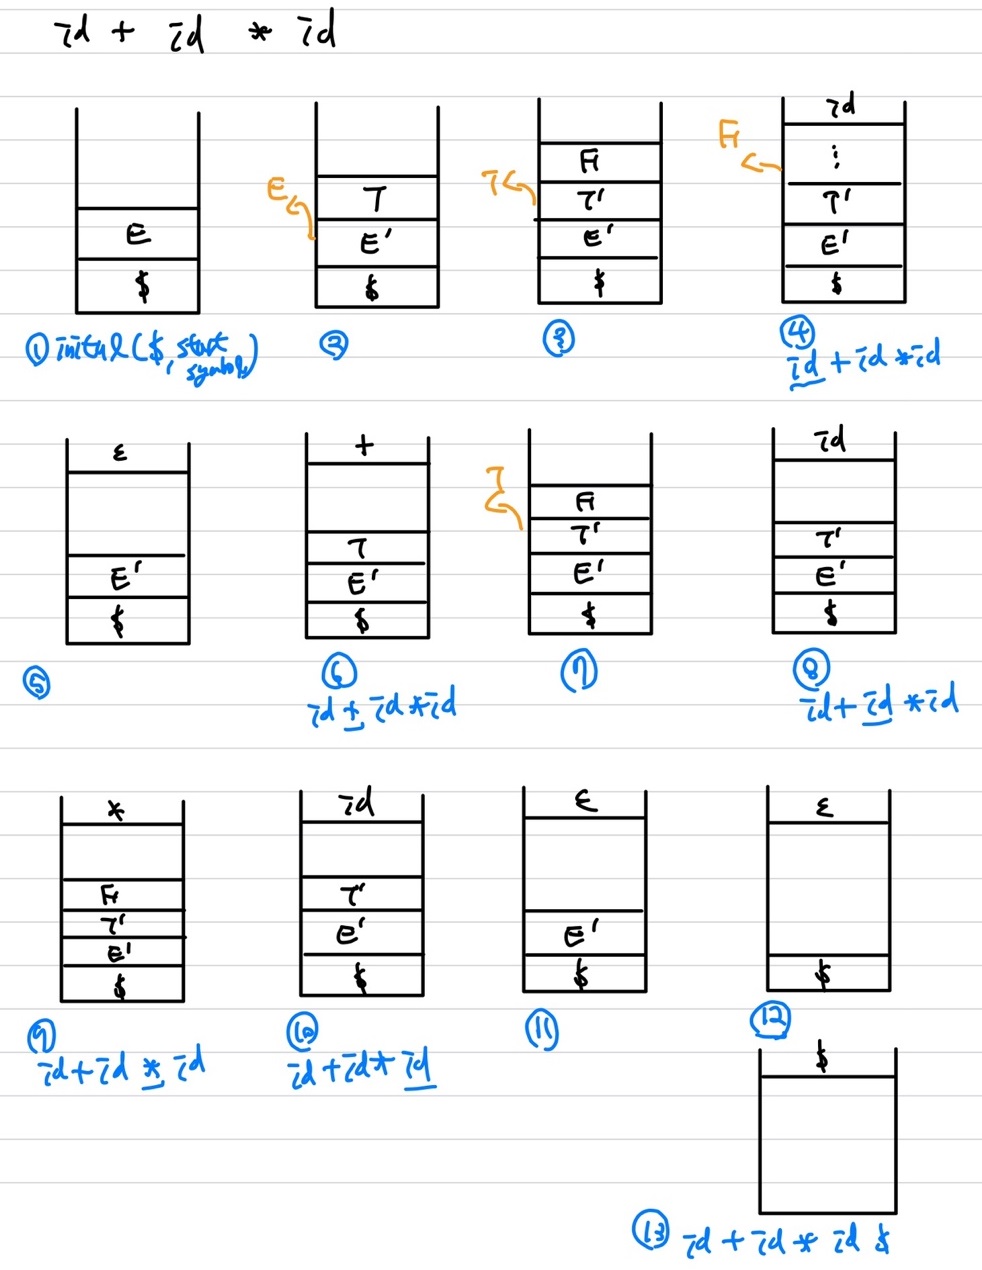 id + id * id
E
$
① initial ($, start symbol)
E
T
E'
$
②
T
F
T'
E'
$
③
F
id
⋮
T'
E'
$
④
id + id * id
ε
E'
$
⑤
+
T
E'
$
⑥
id + id * id
T
F
T'
E'
$
⑦
id
T'
E'
$
⑧
id + id * id
*
F
T'
E'
$
⑨
id + id * id
id
T'
E'
$
⑩
id + id * id
ε
E'
$
⑪
ε
$
⑫
$
⑬ id + id * id $